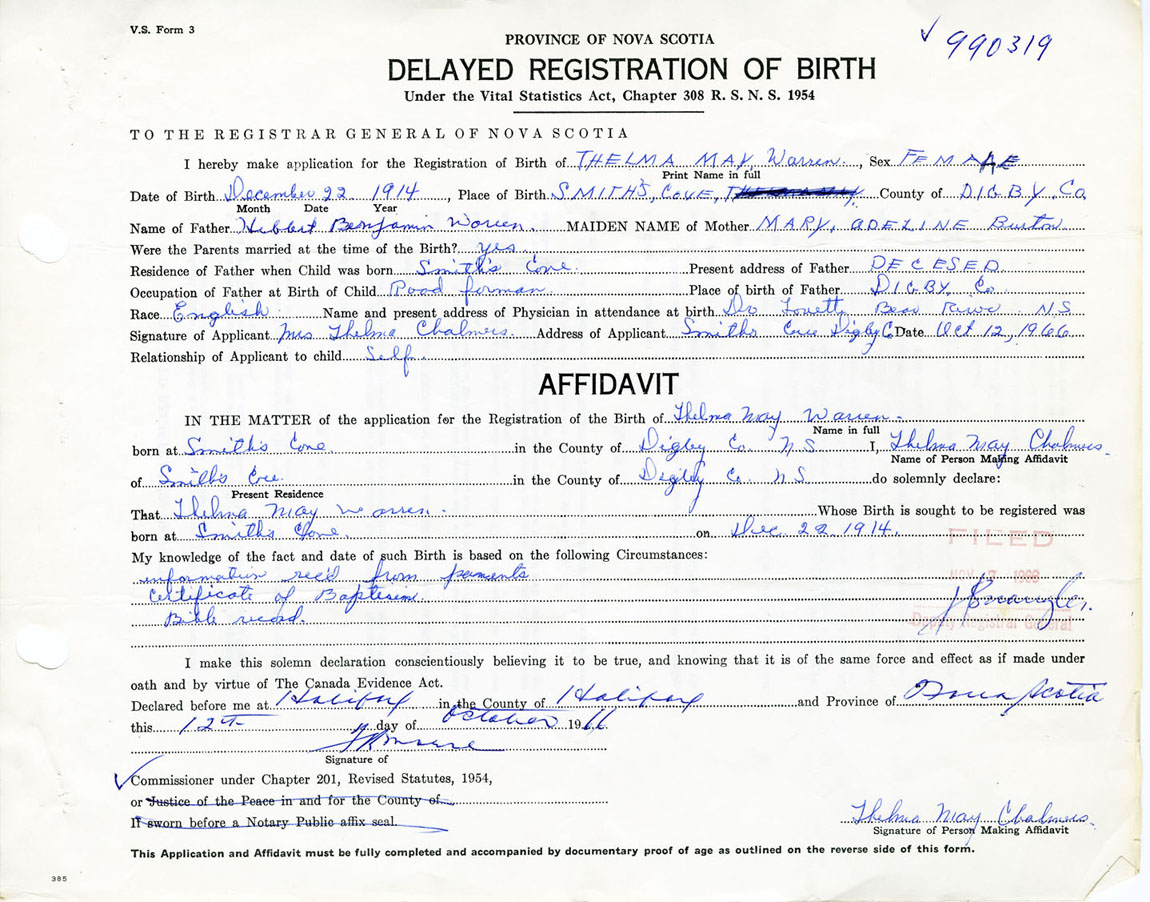 V.S. Form 3
990319
PROVINCE OF NOVA SCOTIA
DELAYED REGISTRATION OF BIRTH
Under the Vital Statistics Act, Chapter 308 R. S. N. S. 1954
TO THE REGISTRAR GENERAL OF NOVA SCOTIA
I hereby make application for the Registration of Birth of THELMA MAY Warren, Sex FEMALE
Print Name in full
Date of Birth December 22 1914, Place of Birth SMITH'S COVE, County of DIGBY Co,
Month Date Year
Name of Father Hibbert Benjamin Warren. MAIDEN NAME of Mother MARY, ADELINE Burton
Were the Parents married at the time of the Birth? yes
Residence of Father when Child was born Smith's Cove. Present address of Father DECESED
Occupation of Father at Birth of Child Road forman Place of birth of Father DIGBY Co.
Race English Name and present address of Physician in attendance at birth Dr Lovett Bear River NS
Signature of Applicant Mrs Thelma Chalmers. Address of Applicant Smiths Cove Digby C Date Oct 12, 1966
Relationship of Applicant to child Self.
AFFIDAVIT
IN THE MATTER of the application for the Registration of the Birth of Thelma May Warren
Name in full
born at Smith's Cove in the County of Digby Co. N S I, Thelma May Chalmers.
Name of Person Making Affidavit
of Smith's Cove in the County of Digby Co. N S do solemnly declare:
Present Residence
That Thelma May Warren. Whose Birth is sought to be registered was
born at Smith's Cove. on Dec. 22 1914.
FILED
My knowledge of the fact and date of such Birth is based on the following Circumstances:
information rec'd from parents
NOV 7
Certificate of Baptism.
Bible record.
Deputy Registrar General
I make this solemn declaration conscientiously believing it to be true, and knowing that it is of the same force and effect as if made under
oath and by virtue of The Canada Evidence Act.
Declared before me at Halifax in the County of Halifax and Province of Nova Scotia
this 12th day of October 1966
Signature of
Commissioner under Chapter 201, Revised Statutes, 1954,
or Justice of the Peace in and for the County of
If sworn before a Notary Public affix seal.
Thelma May Chalmers.
Signature of Person Making Affidavit
This Application and Affidavit must be fully completed and accompanied by documentary proof of age as outlined on the reverse side of this form.
385